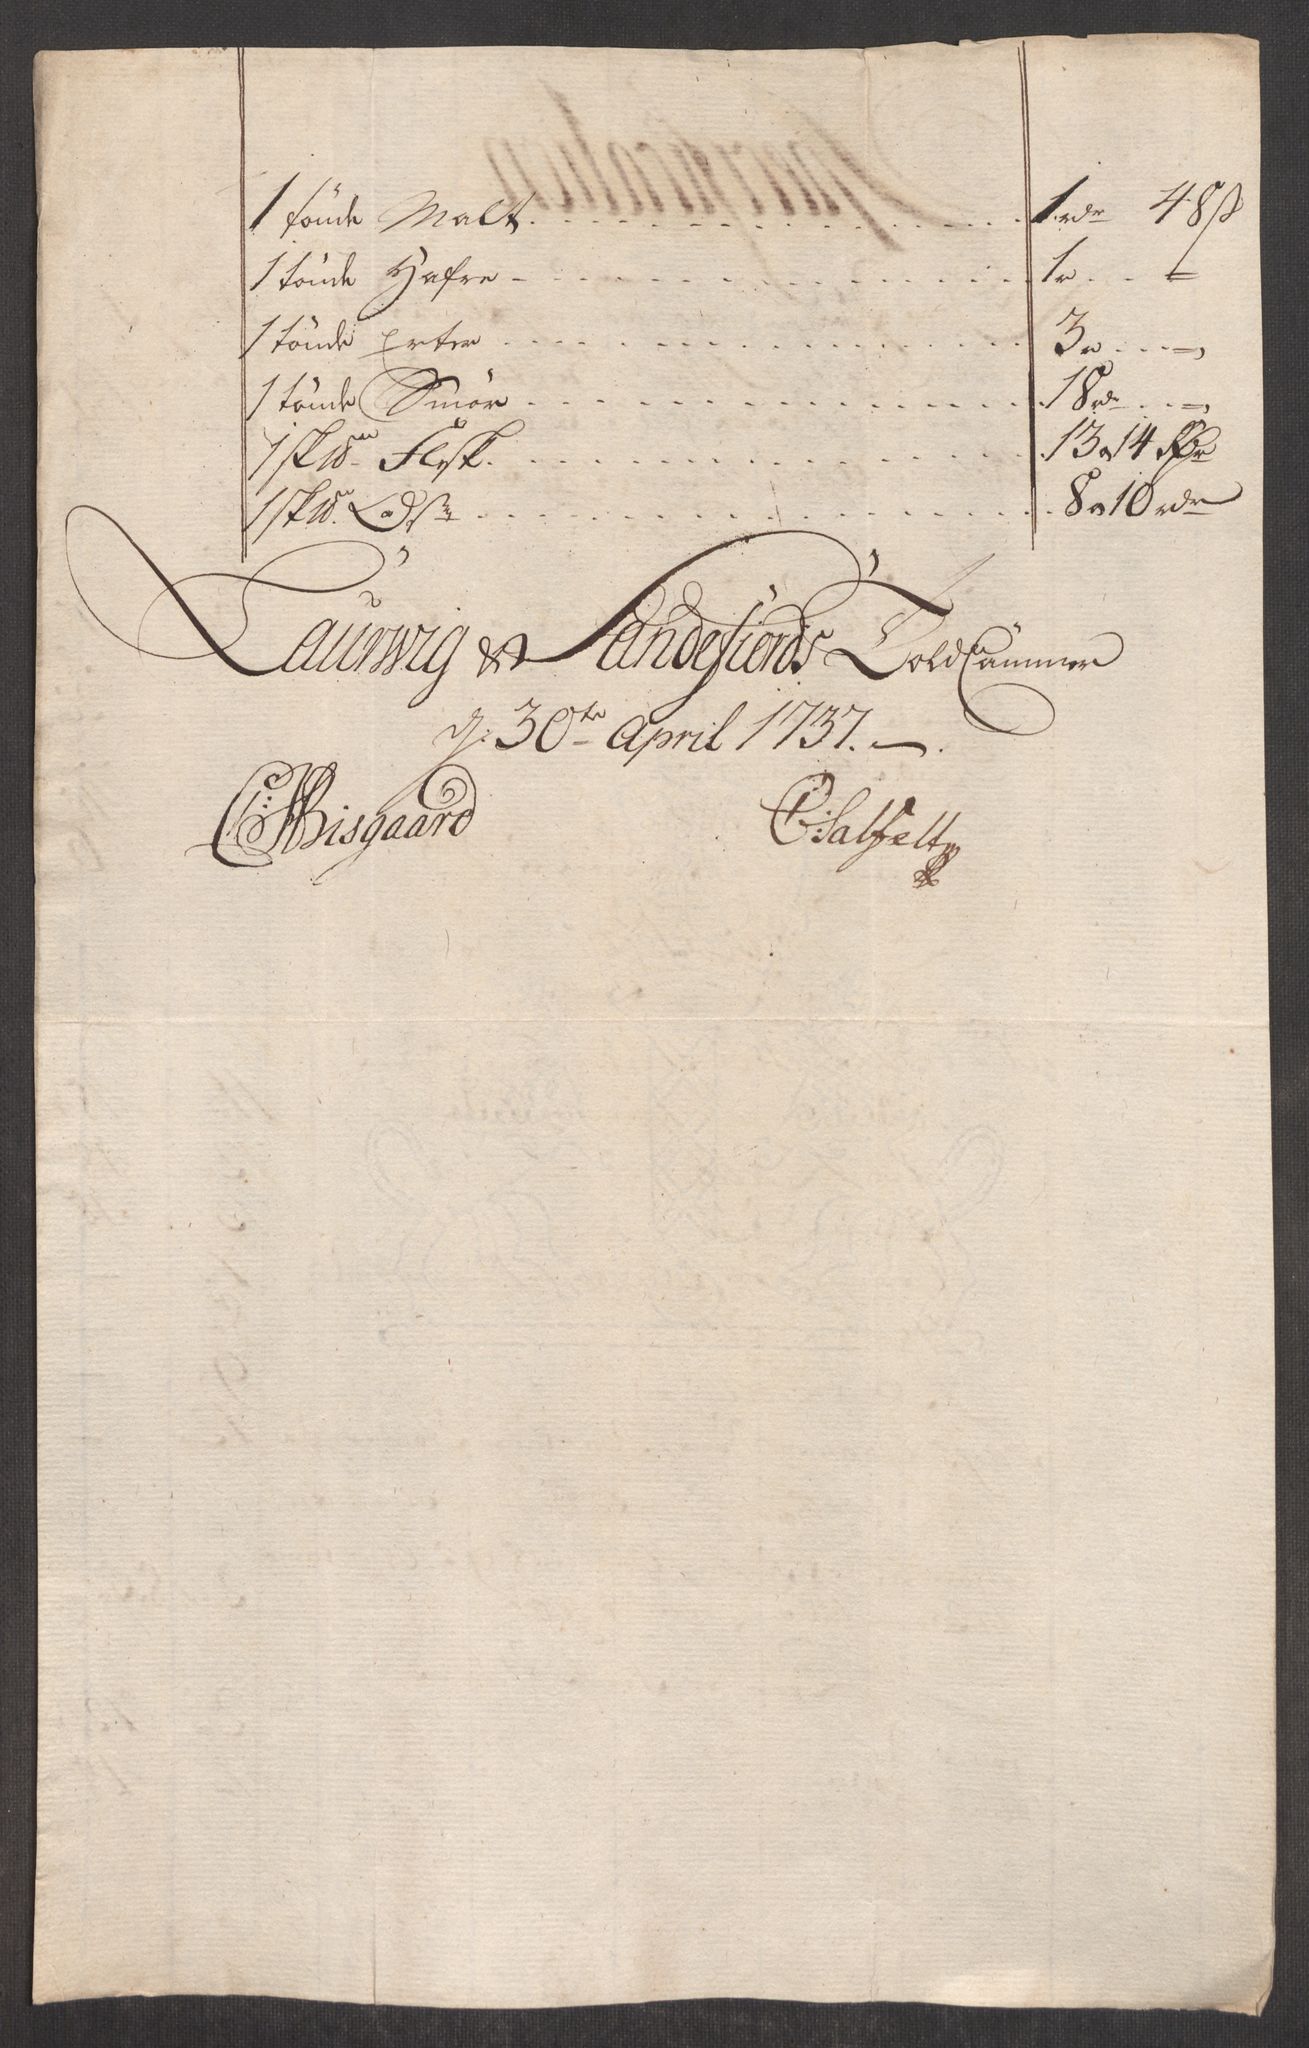 1 tönde Malt . . . 1 rdr 48 ß
1 tönde Hafre - . . . 1 " . . . "
1 tönde Erter . . . 3 " . . . "
1 tönde Smör . . . 18 rdr . . . "
1 sk℔ Flesk . . . 13 a 14
1 sk℔ Ost . . . 8 a 10 rdr
Laurwig & Sandefiords Told Cammer
d: 30te April 1737.
Bisgaard C: Salfelt